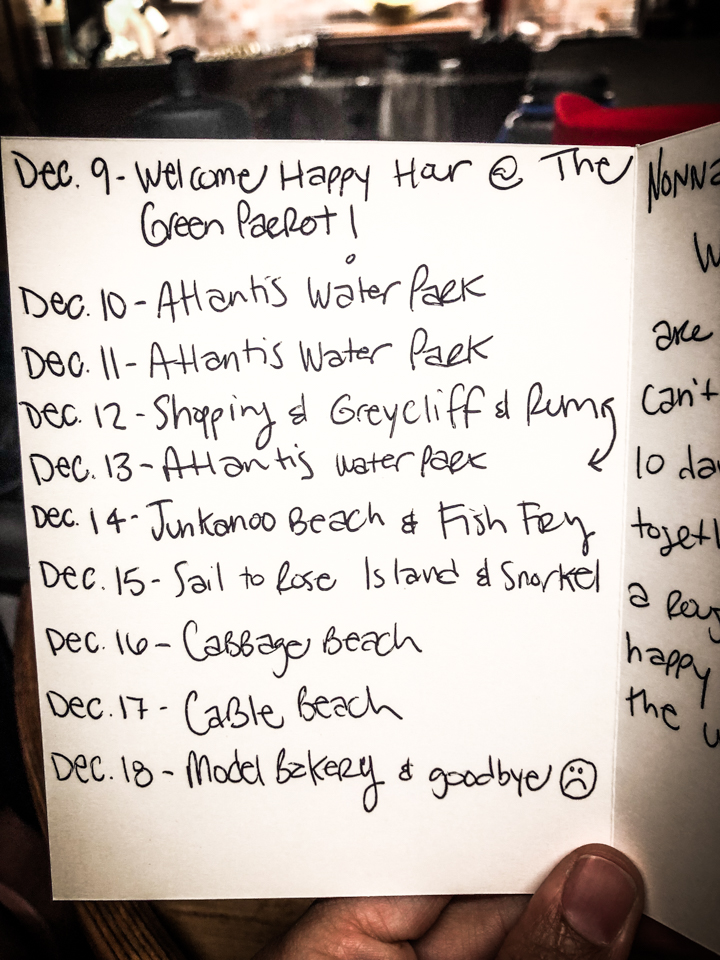 Dec. 9 - Welcome Happy Hour @ The
Green Parrot!
Dec. 10 - Atlantis Water Park
Dec. 11 - Atlantis Water Park
Dec. 12 - Shopping & Greycliff & Rums
Dec. 13 - Atlantis water park
Dec. 14 - Junkanoo Beach & Fish Fry
Dec. 15 - Sail to Rose Island & Snorkel
Dec. 16 - Cabbage Beach
Dec. 17 - Cable Beach
Dec. 18 - Model Bakery & goodbye ☹
are
can't
10
a
happy
the